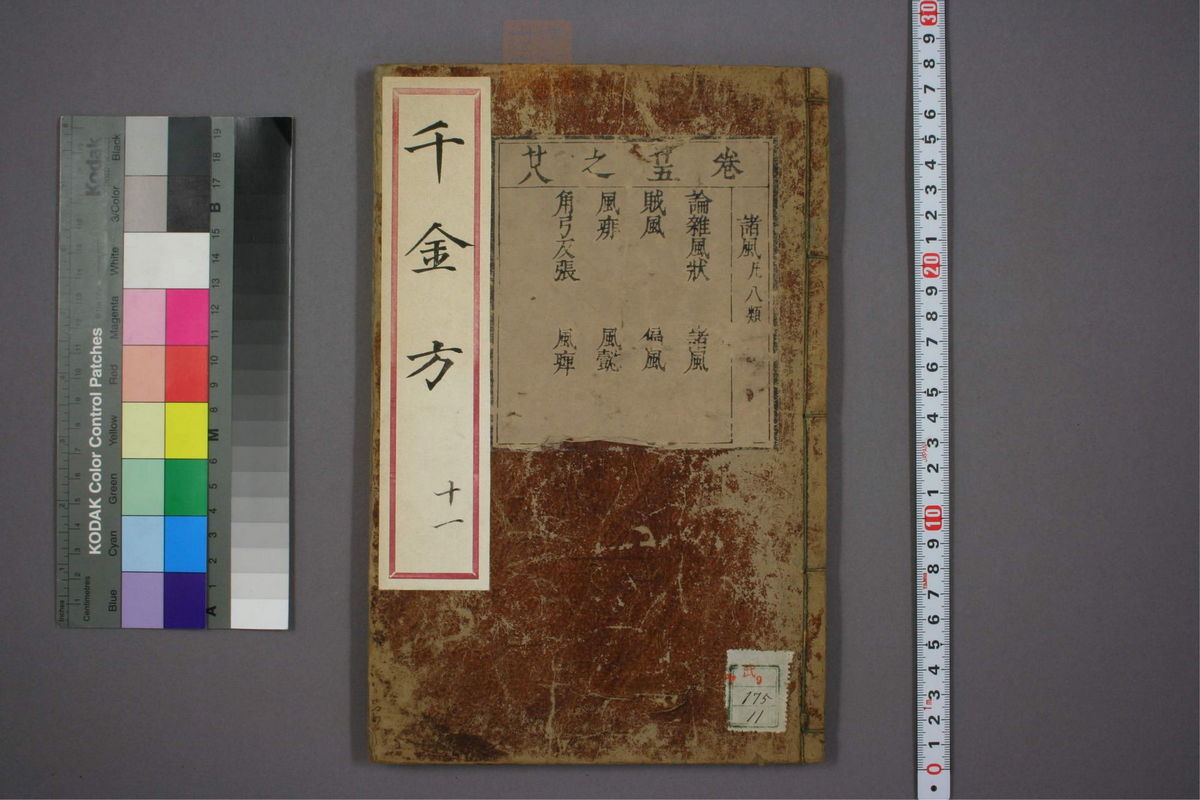 千金方 十一
卷廿五之廿八
諸風凡八類
論雜風狀 諸風
賊風 偏風
風痱 風懿
角弓反張 風痺
175
11
Kodak
KODAK Color Control Patches
Black
3/Color
White
Magenta
Red
Yellow
Green
Cyan
Blue
Inches
Centimetres
19
18
17
B
15
14
13
12
11
10
9
8
M
6
5
4
3
2
1
A
30
9
8
7
6
5
4
3
2
1
20
9
8
7
6
5
4
3
2
1
10
9
8
7
6
5
4
3
2
1
0